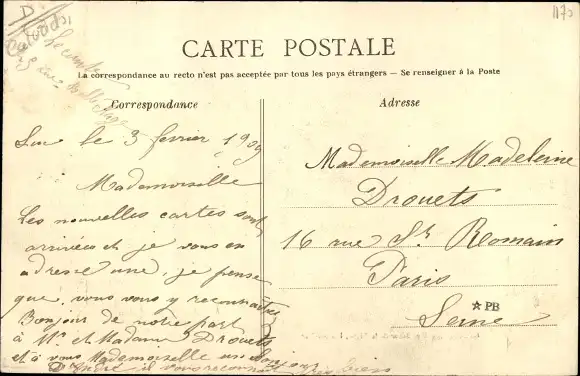 1173
D
CARTE POSTALE
La correspondance au recto n'est pas acceptée par tous les pays étrangers — Se renseigner à la Poste
Correspondance
Luc le 3 février 1909
Mademoiselle
Les nouvelles cartes sont
arrivées et je vous en
adresse une, je pense
que, vous vous y reconnaîtrez
Bonjour de notre part
à Mr. et Madame Drouets
et à vous Mademoiselle un bonjour
D'André il vous reconnait très bien
Adresse
Mademoiselle Madeleine
Drouets
16 rue St Romain
Paris
Seine
☆ PB